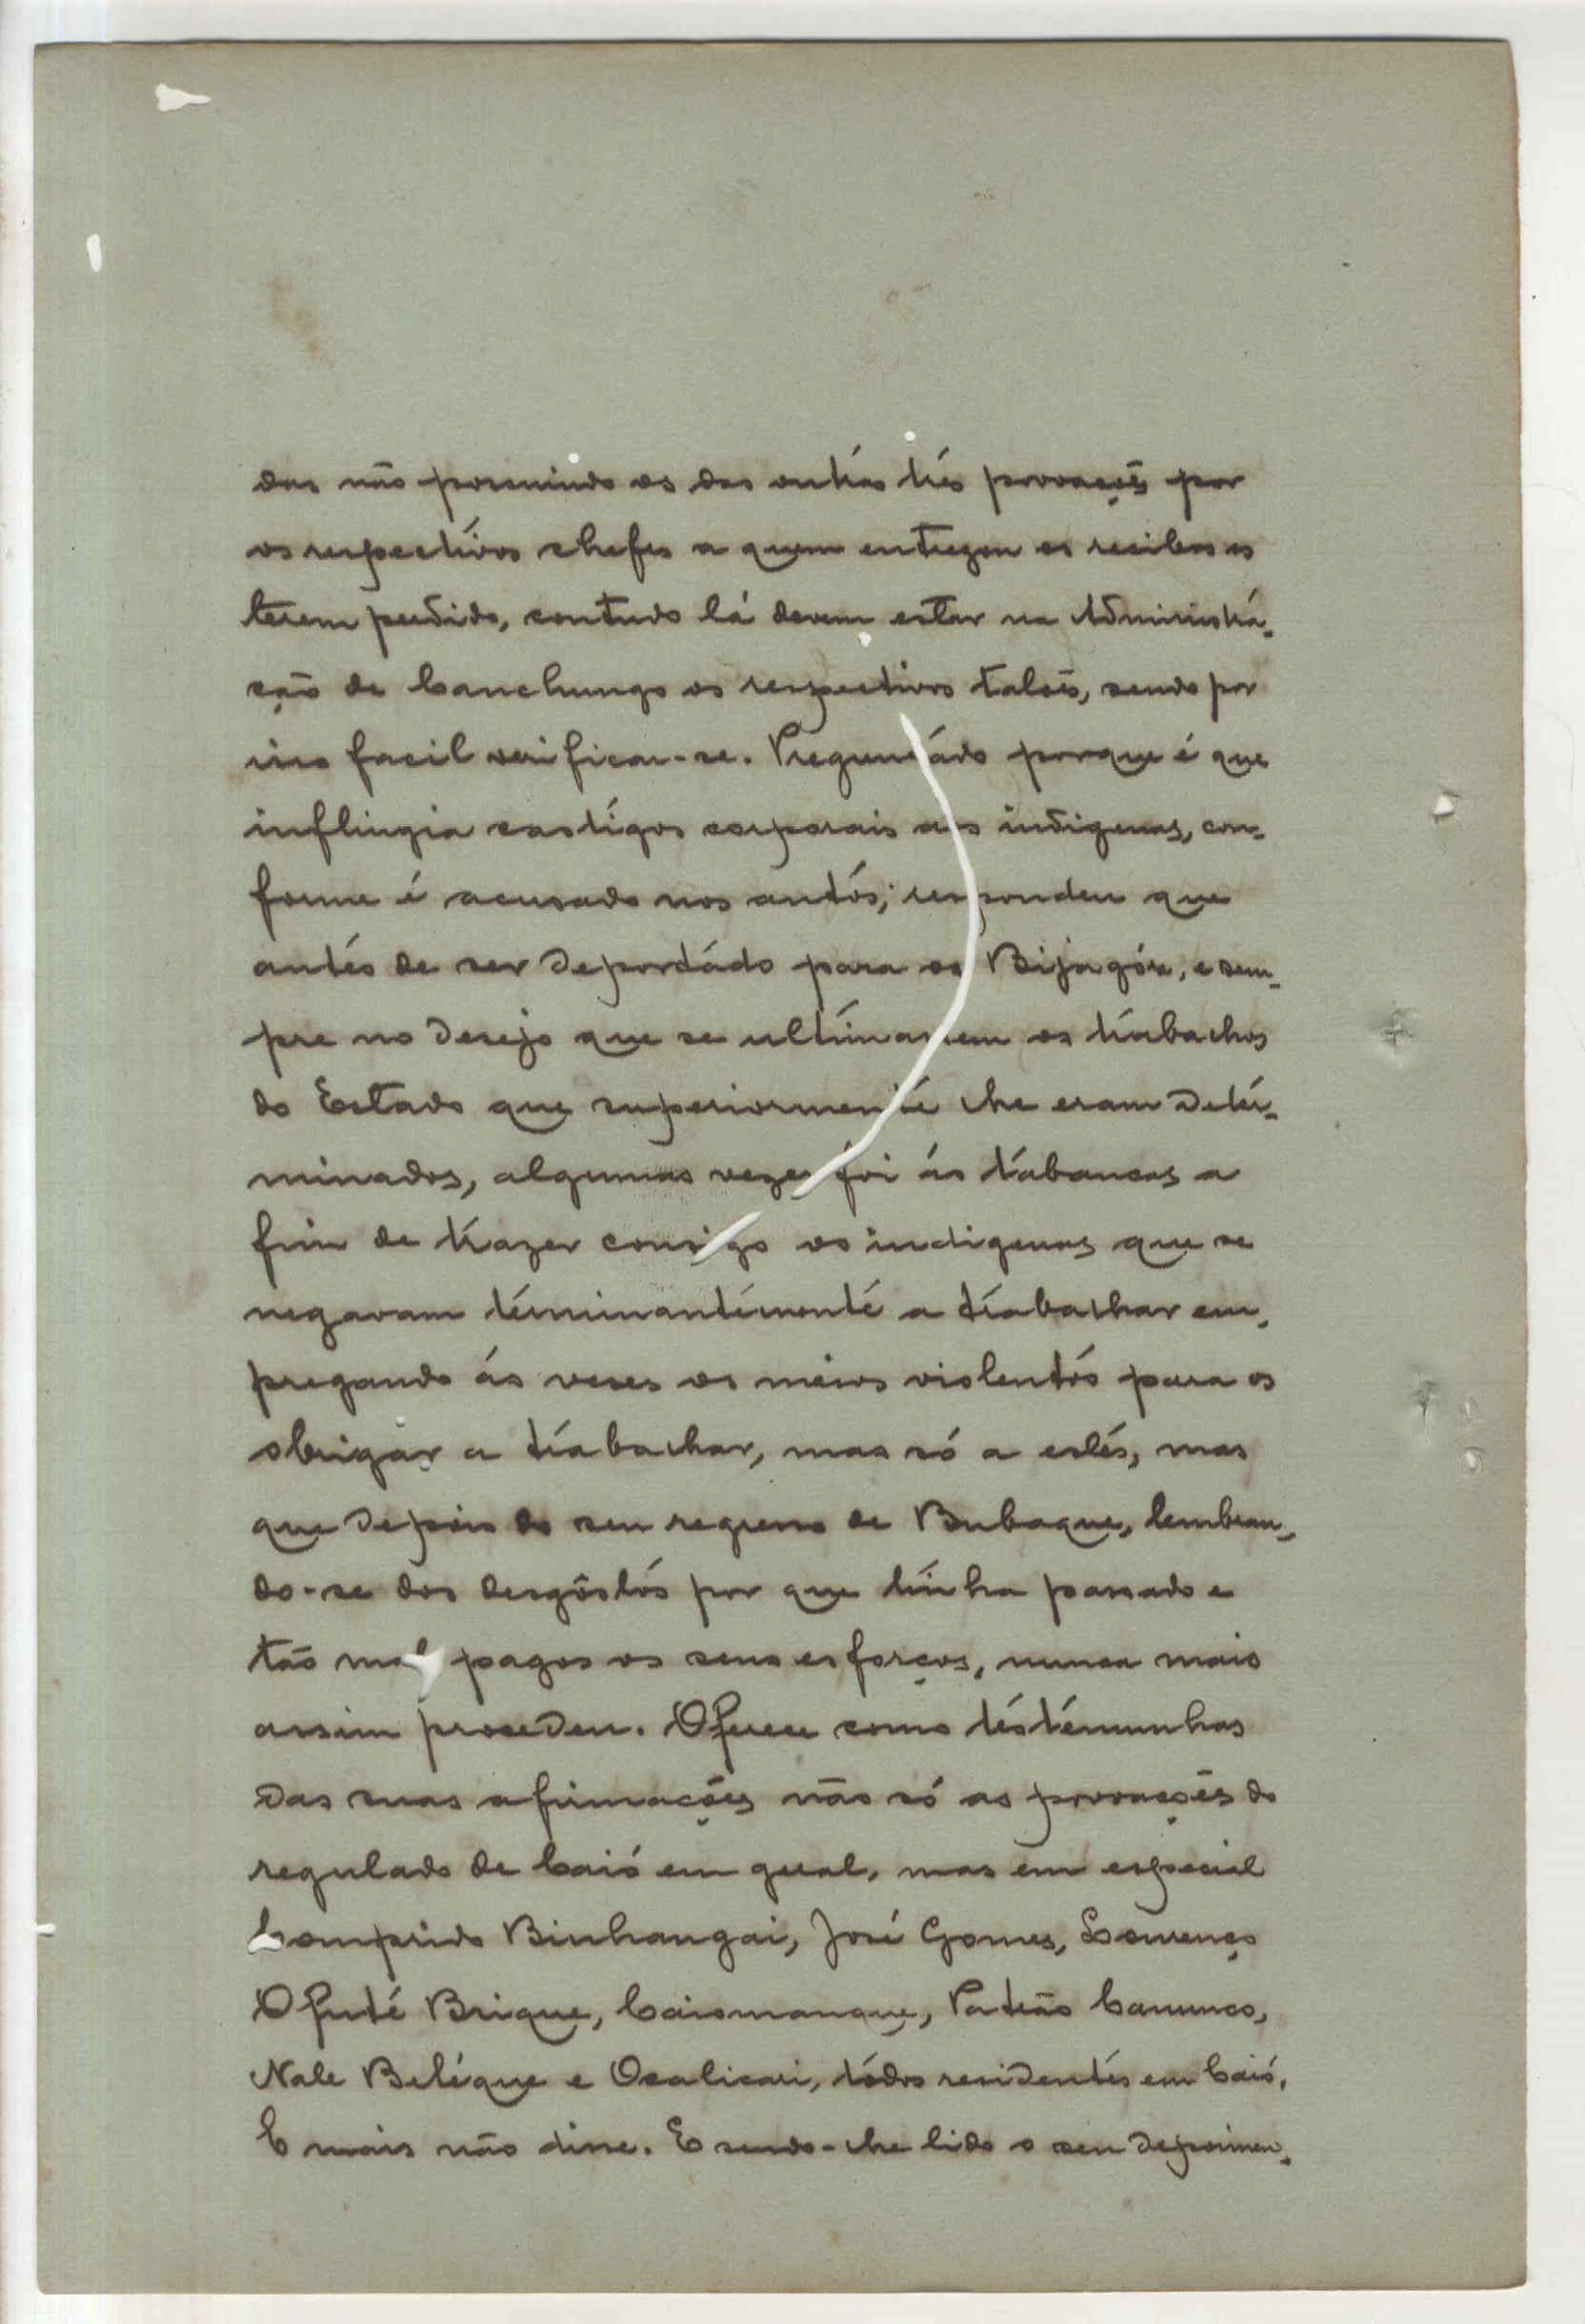 das não possuindo os das outras três povoações por
os respectivos chefes a quem entregou os recibos os
terem perdido, contudo lá devem estar na Administra-
ção de Canchungo os respectivos talões, sendo por
isso facil verificar-se. Preguntado porque é que
inflingia castigos corporais aos indigenas, con-
forme é acusado nos autos; respondeu que
antes de ser deportado para os Bijagós, e sem-
pre no desejo que se ultimassem os trabalhos
do Estado que superiormente lhe eram deter-
minados, algumas vezes foi ás tabancas a
fim de trazer consigo os indigenas que se
negavam terminantemente a trabalhar em-
pregando ás veses os meios violentos para os
obrigar a trabalhar, mas só a estes, mas
que depois do seu regresso de Bubaque, lembran-
do-se dos desgôstos por que tinha passado e
tão mal pagos os seus esforços, nunca mais
assim procedeu. Oferece como testemunhas
das suas afirmações não só as povoações do
regulado de Caió em geral, mas em especial
Comprido Binhangai, José Gomes, Lourenço
Ofuté Brique, Caiomanque, Patrão Canunco,
Nale Beléque e Ocalicari, todos residentes em Caió.
E mais não disse. E sendo-lhe lido o seu depoimen-